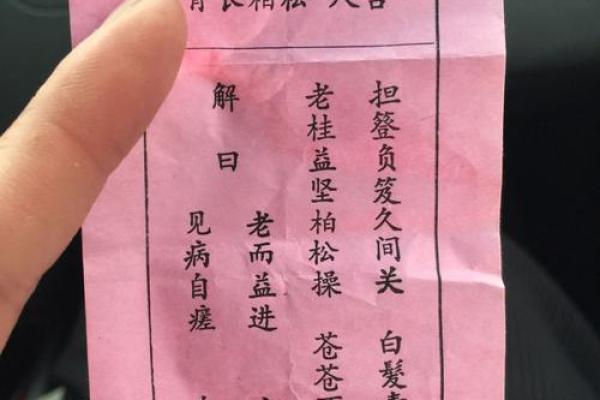 人 松柏长青
担簦负笈久间关 白髮
老桂益坚柏松操 苍苍
解曰
老而益进
见病自瘥